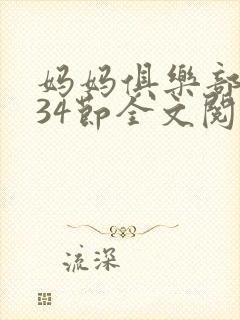 妈妈俱樂部
34節全文閱
流深